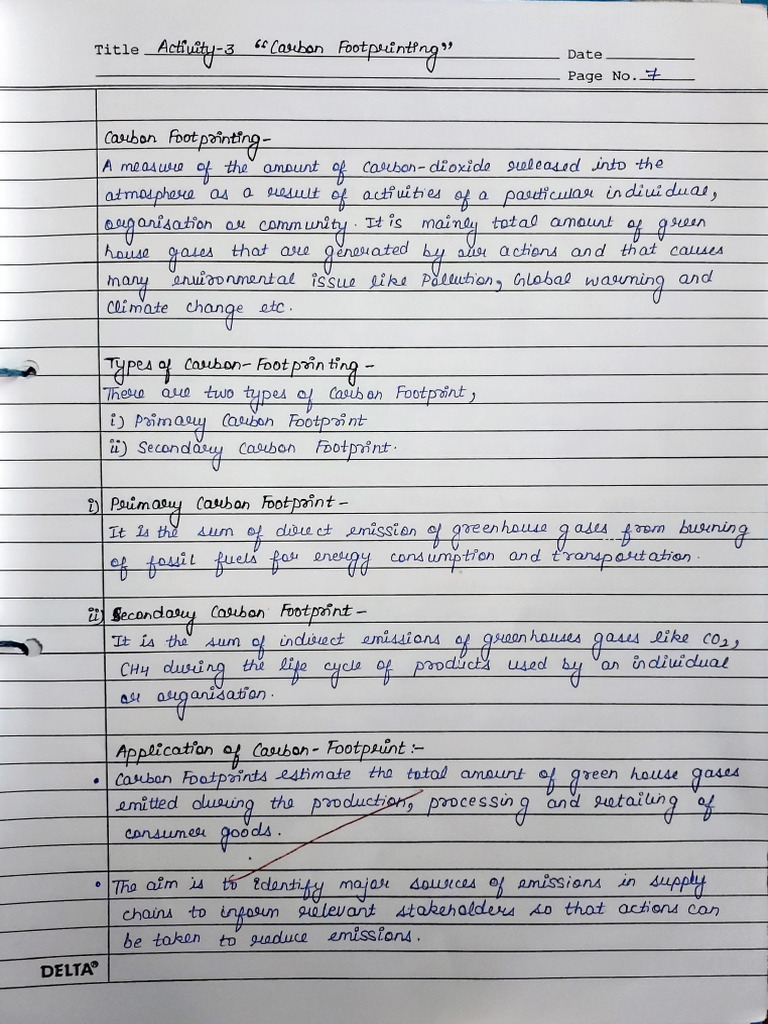 Title Activity-3 "Carbon Footprinting"
Date
Page No. 7
Carbon Footprinting-
A measure of the amount of carbon-dioxide released into the
atmosphere as a result of activities of a particular individual,
organisation or community. It is mainly total amount of green
house gases that are generated by our actions and that causes
many environmental issue like Pollution, Global warming and
Climate change etc.
Types of Carbon-Footprinting-
There are two types of Carbon Footprint,
i) Primary Carbon Footprint
ii) Secondary Carbon Footprint.
i) Primary Carbon Footprint-
It is the sum of direct emission of greenhouse gases from burning
of fossil fuels for energy consumption and transportation.
ii) Secondary Carbon Footprint-
It is the sum of indirect emissions of greenhouses gases like CO2,
CH4 during the life cycle of products used by an individual
or organisation.
Application of Carbon-Footprint:-
• Carbon Footprints estimate the total amount of green house gases
emitted during the production, processing and retailing of
consumer goods.
• The aim is to identify major sources of emissions in supply
chains to inform relevant stakeholders so that actions can
be taken to reduce emissions.
DELTA®